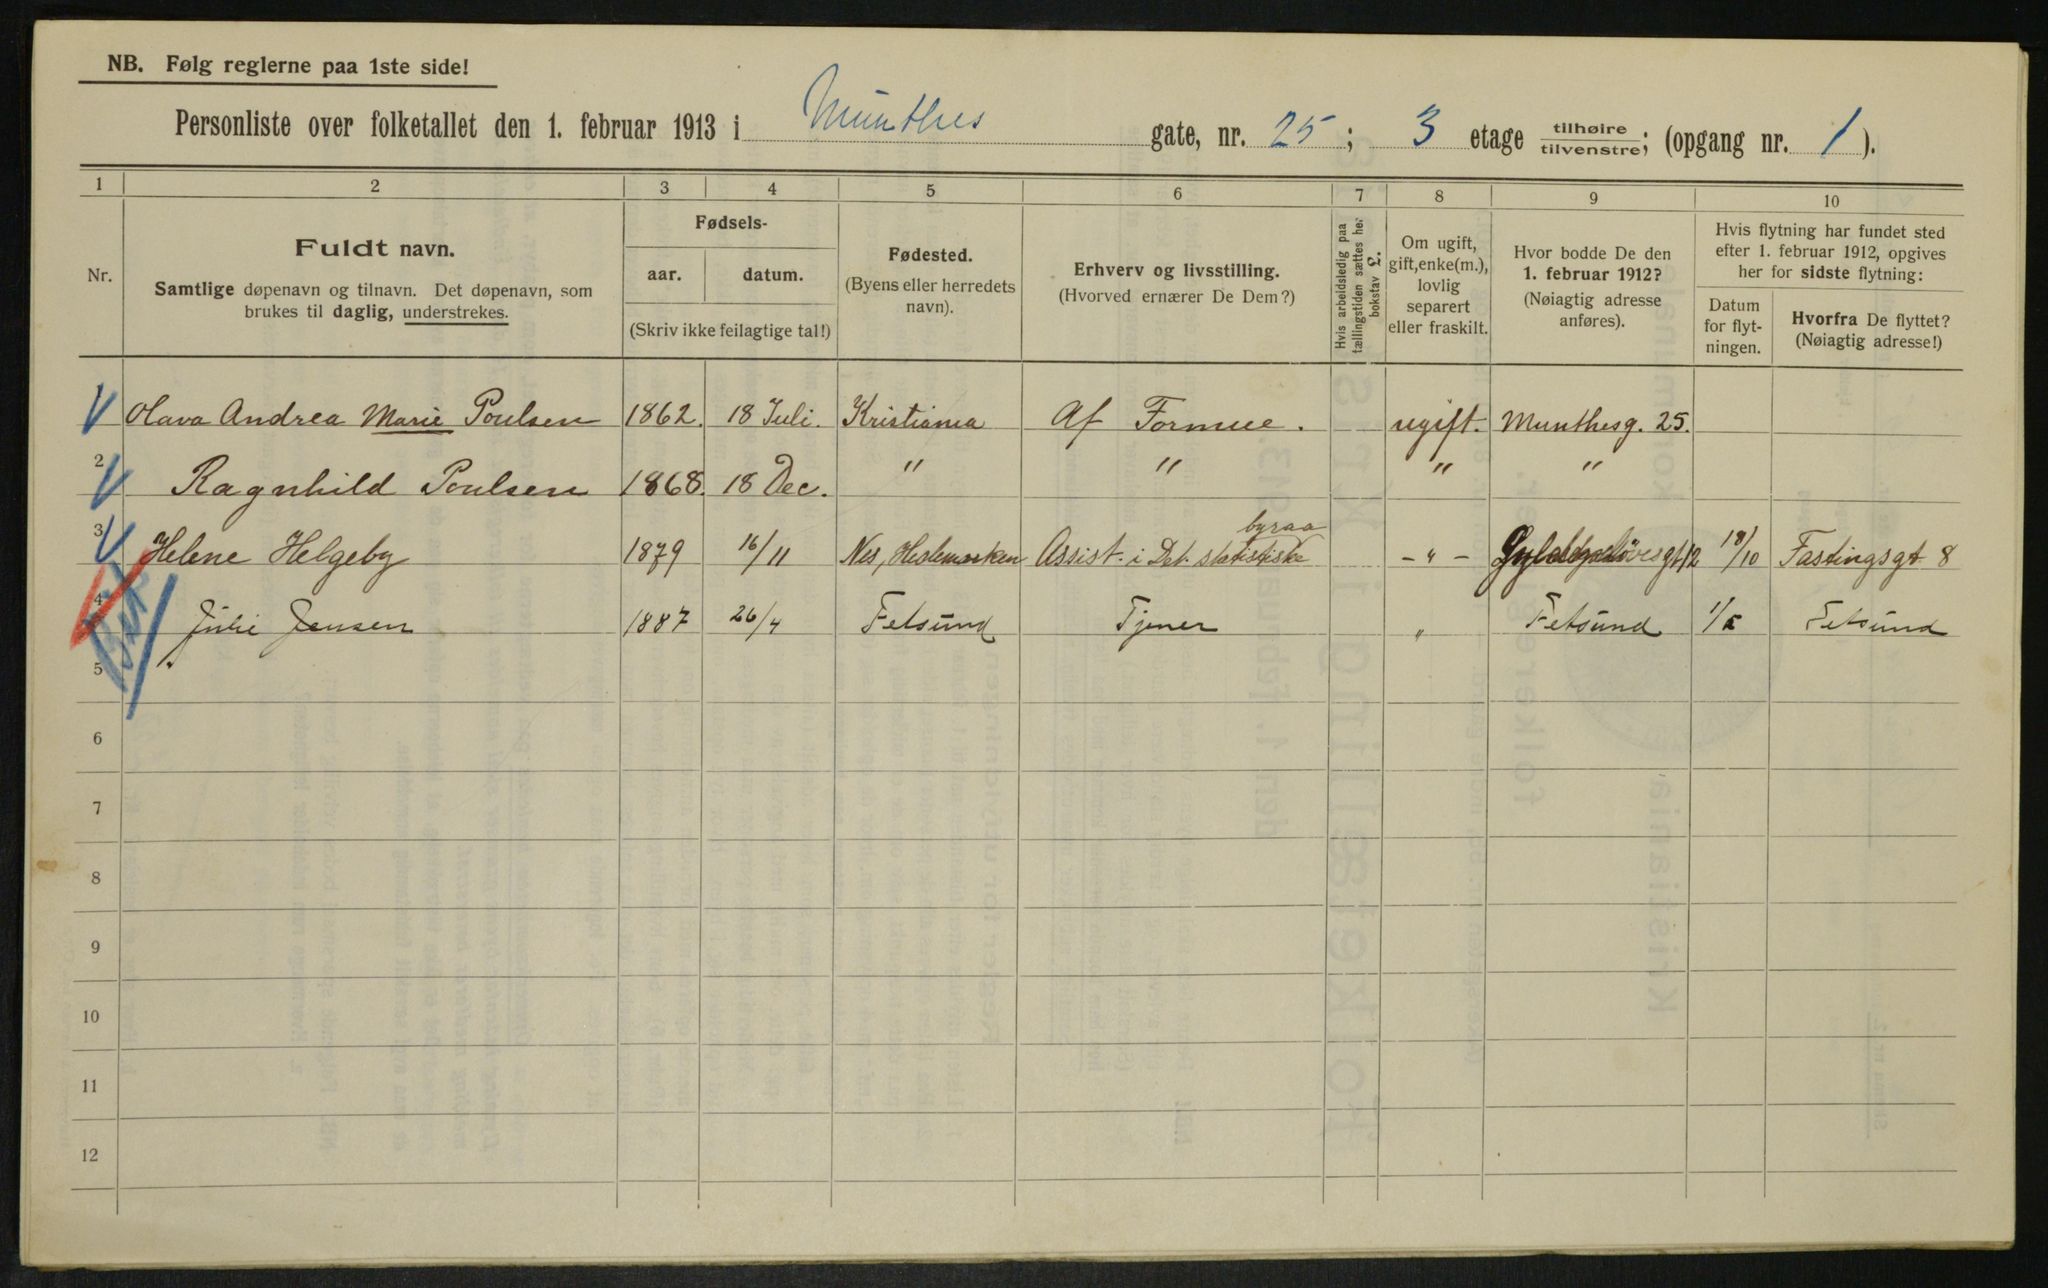 NB. Følg reglerne paa 1ste side!
Personliste over folketallet den 1. februar 1913 i Munthes gate, nr. 25; 3 etage tilhøire/tilvenstre; (opgang nr. 1).
1 2 3 4 5 6 7 8 9 10
Nr.
Fuldt navn.
Samtlige døpenavn og tilnavn. Det døpenavn, som
brukes til daglig, understrekes.
Fødsels-
aar. datum.
(Skriv ikke feilagtige tal!)
Fødested.
(Byens eller herredets
navn).
Erhverv og livsstilling.
(Hvorved ernærer De Dem?)
Hvis arbeidsledig paa
tællingstiden sættes her
bokstav L.
Om ugift,
gift, enke(m.),
lovlig
separert
eller fraskilt.
Hvor bodde De den
1. februar 1912?
(Nøiagtig adresse
anføres).
Hvis flytning har fundet sted
efter 1. februar 1912, opgives
her for sidste flytning:
Datum
for flyt-
ningen.
Hvorfra De flyttet?
(Nøiagtig adresse!)
Olava Andrea Marie Poulsen 1862. 18 Juli. Kristiania Af Formue. ugift. Munthesg. 25.
2 Ragnhild Poulsen 1868. 18 Dec. " " " "
3 Helene Helgeby 1879 16/11 Nes, Hedemarken Assist. i Det statistiske byraa - " - 18/10 Fastingsgt 8
4 Julie Jensen 1887 26/4 Fetsund Tjener " Fetsund Fetsund
5
6
7
8
9
10
11
12